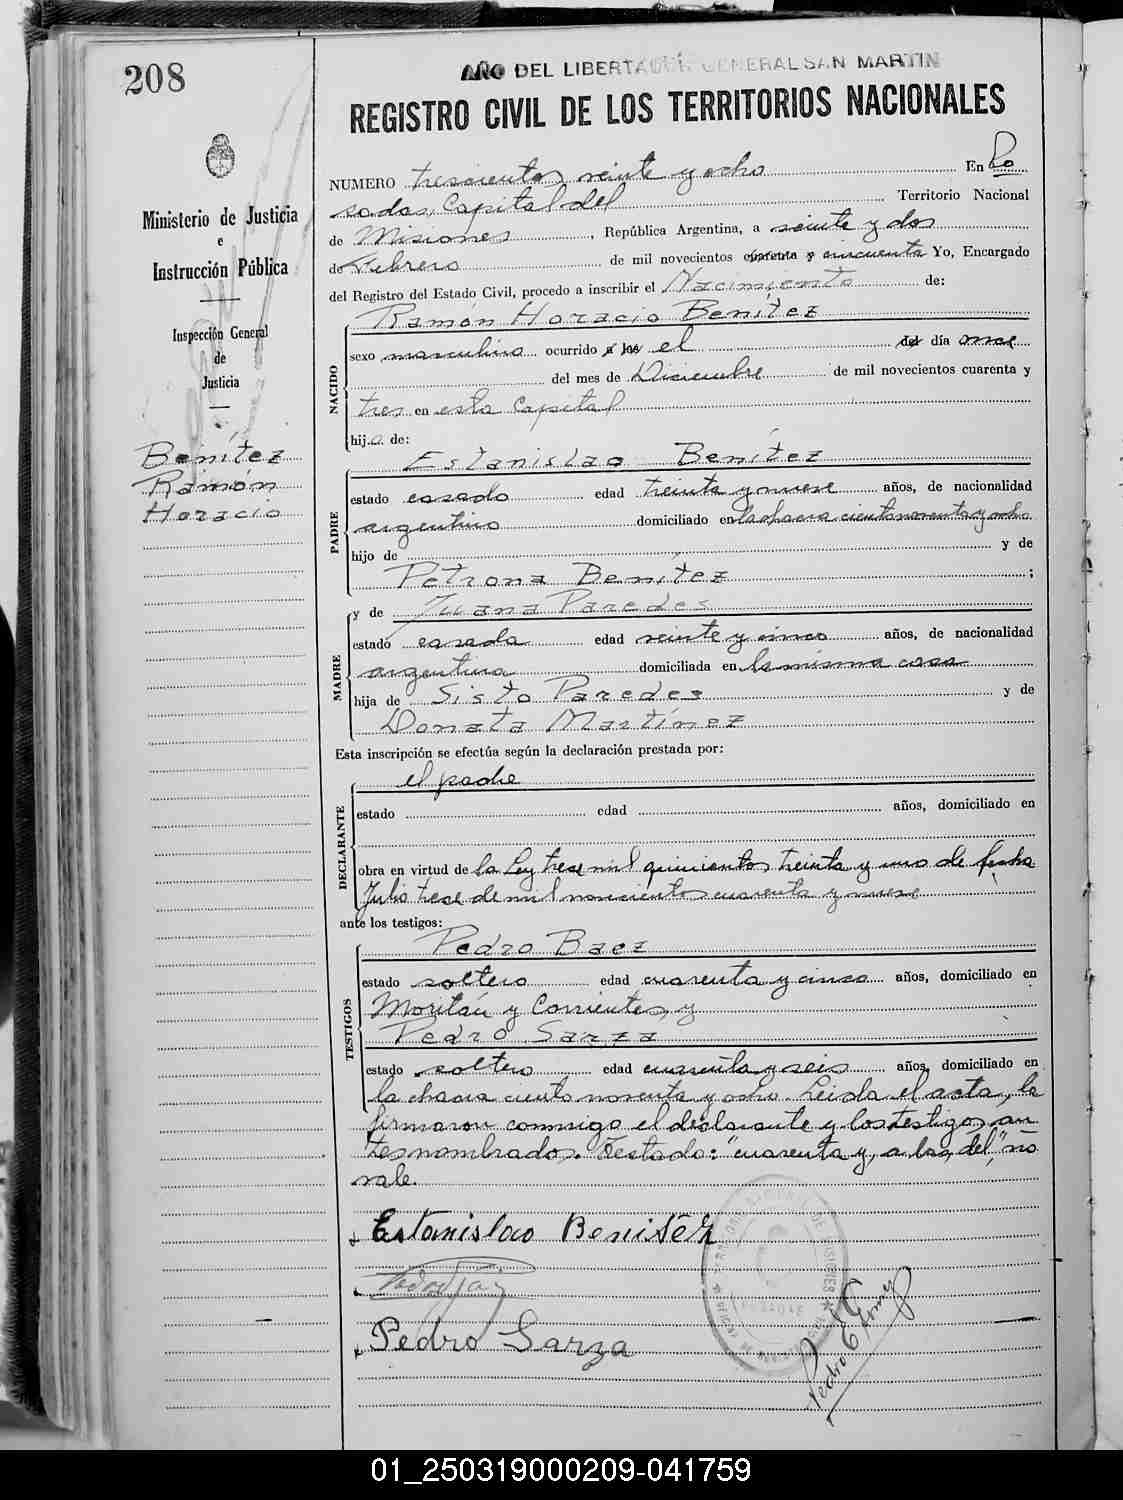 208
AÑO DEL LIBERTADOR GENERAL SAN MARTIN
REGISTRO CIVIL DE LOS TERRITORIOS NACIONALES
Ministerio de Justicia
e
Instrucción Pública
Inspección General
de
Justicia
Benítez
Ramón
Horacio
NUMERO trescientos veinte y ocho En Po
sadas, Capital del Territorio Nacional
de Misiones, República Argentina, a veinte y dos
de Febrero de mil novecientos cuarenta y cincuenta Yo, Encargado
del Registro del Estado Civil, procedo a inscribir el Nacimiento de:
Ramón Horacio Benítez
NACIDO
sexo masculino ocurrido a las el del día once
del mes de Diciembre de mil novecientos cuarenta y
tres en esta Capital
hijo de:
Estanislao Benítez
PADRE
estado casado edad treinta y nueve años, de nacionalidad
argentino domiciliado en la chacra ciento noventa y ocho
hijo de y de
Petrona Benítez ;
y de Juana Paredes
MADRE
estado casada edad veinte y cinco años, de nacionalidad
argentina domiciliada en la misma casa
hija de Sisto Paredes y de
Donata Martínez
Esta inscripción se efectúa según la declaración prestada por:
el padre
DECLARANTE
estado edad años, domiciliado en
obra en virtud de la Ley trece mil quinientos treinta y uno de fecha
Julio trece de mil novecientos cuarenta y nueve
ante los testigos:
Pedro Baez
TESTIGOS
estado soltero edad cuarenta y cinco años, domiciliado en
Moritán y Corrientes, y
Pedro Sarza
estado soltero edad cuarenta y seis años, domiciliado en
la chacra ciento noventa y ocho. Leida el acta, la
firmaron conmigo el declarante y los testigos an
tesnombrados. Testado: "cuarenta y, a las, del," no
vale.
Estanislao Benitez
Pedro Sarza
Pedro E Gomez
01_250319000209-041759